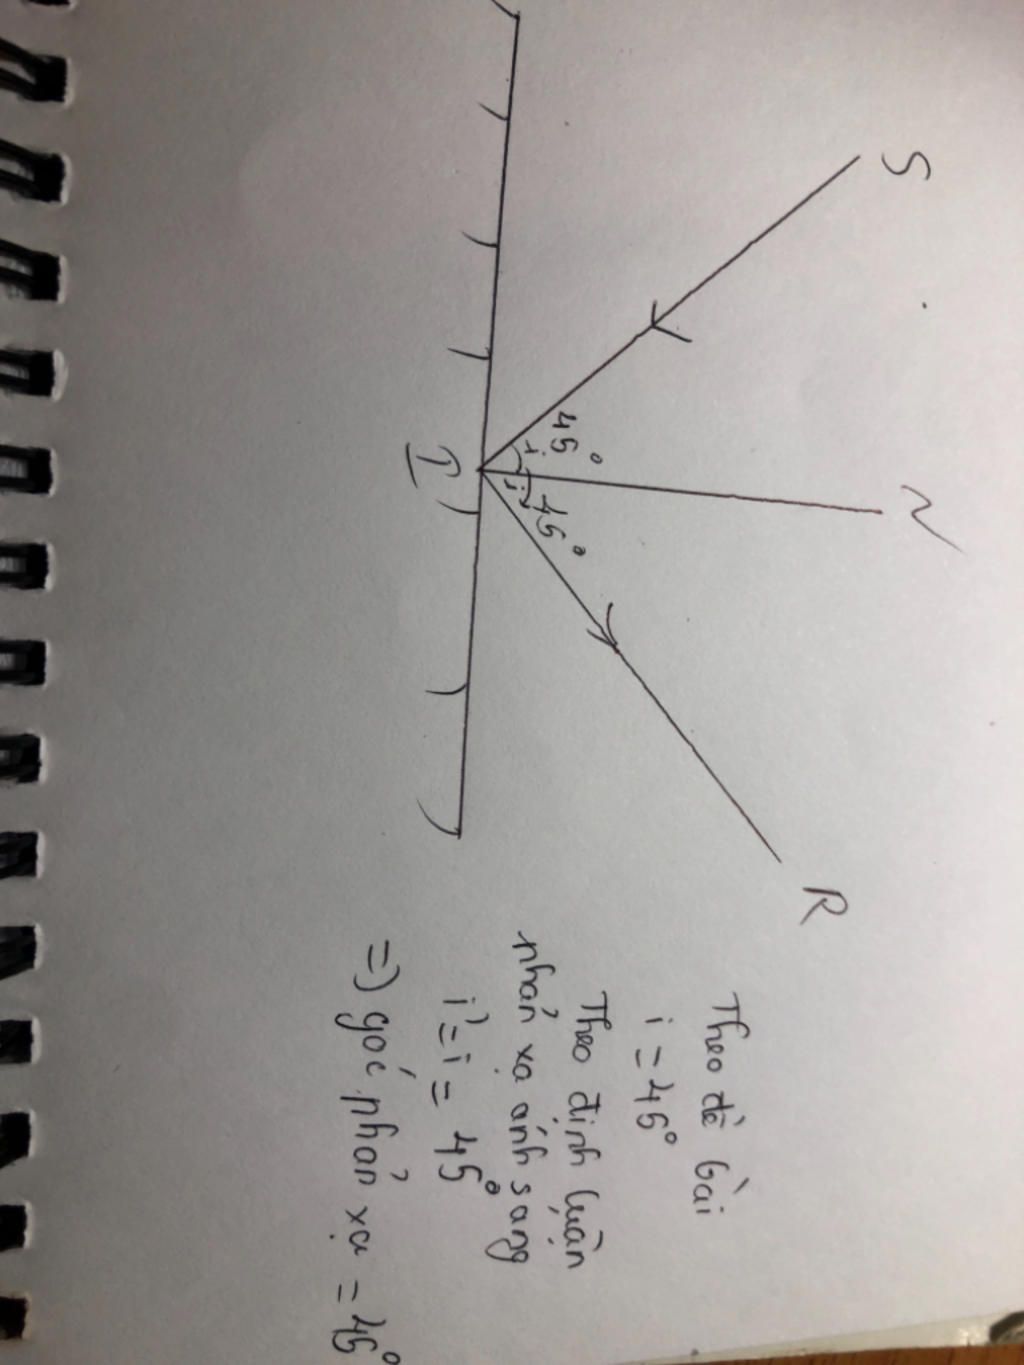 S
N
R
I
45°
i
i'
45°
Theo đề bài
i = 45°
Theo định luận
phản xạ ánh sang
i' = i = 45°
=) góc phản xạ = 45°